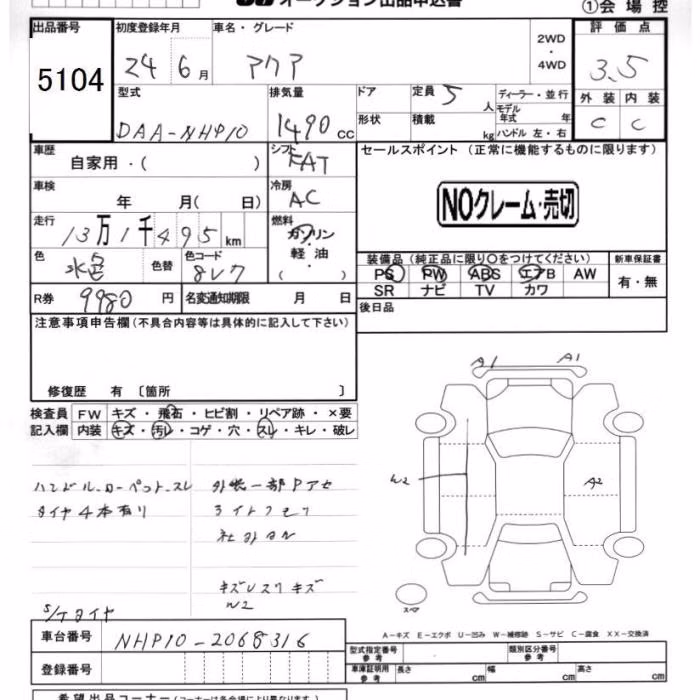 オークション出品申込書
①会場控
出品番号 初度登録年月 車名・グレード 2WD ・ 4WD 評価点
5104 24 6月 アクア 3.5
型式 排気量 ドア 定員 5人 ディーラー・並行 外装 内装
DAA-NHP10 1490cc 形状 積載 kg モデル年式 年 C C
ハンドル 左・右
車歴 自家用・( ) シフト FAT セールスポイント (正常に機能するものに限ります)
車検 年 月( 日) 冷房 AC
NOクレーム・売切
走行 13万1千495km 燃料 ガソリン・軽油・( )
色 水色 色替 色コード 8V7
装備品(純正品に限り○をつけてください) 新車保証書
PS PW ABS エアB AW 有・無
SR ナビ TV カワ
R券 9980円 名変通知期限 月 日 後日品
注意事項申告欄(不具合内容等は具体的に記入して下さい)
修復歴 有 〔箇所 〕
検査員 FW キズ・飛石・ヒビ割・リペア跡・×要
記入欄 内装 キズ・汚レ・コゲ・穴・スレ・キレ・破レ
A1 A1
W2 A2
タイヤ4本有リ
キズ
W2
S/Tタイヤ
スペア
A-キズ E-エクボ U-凹み W-補修跡 S-サビ C-腐食 XX-交換済
車台番号 NHP10-2068316
型式指定番号 参考 類別区分番号 参考
登録番号 車庫証明用 参考 長さ cm 幅 cm 高さ cm
希望出品コーナー(コーナーは各会場により異なります)